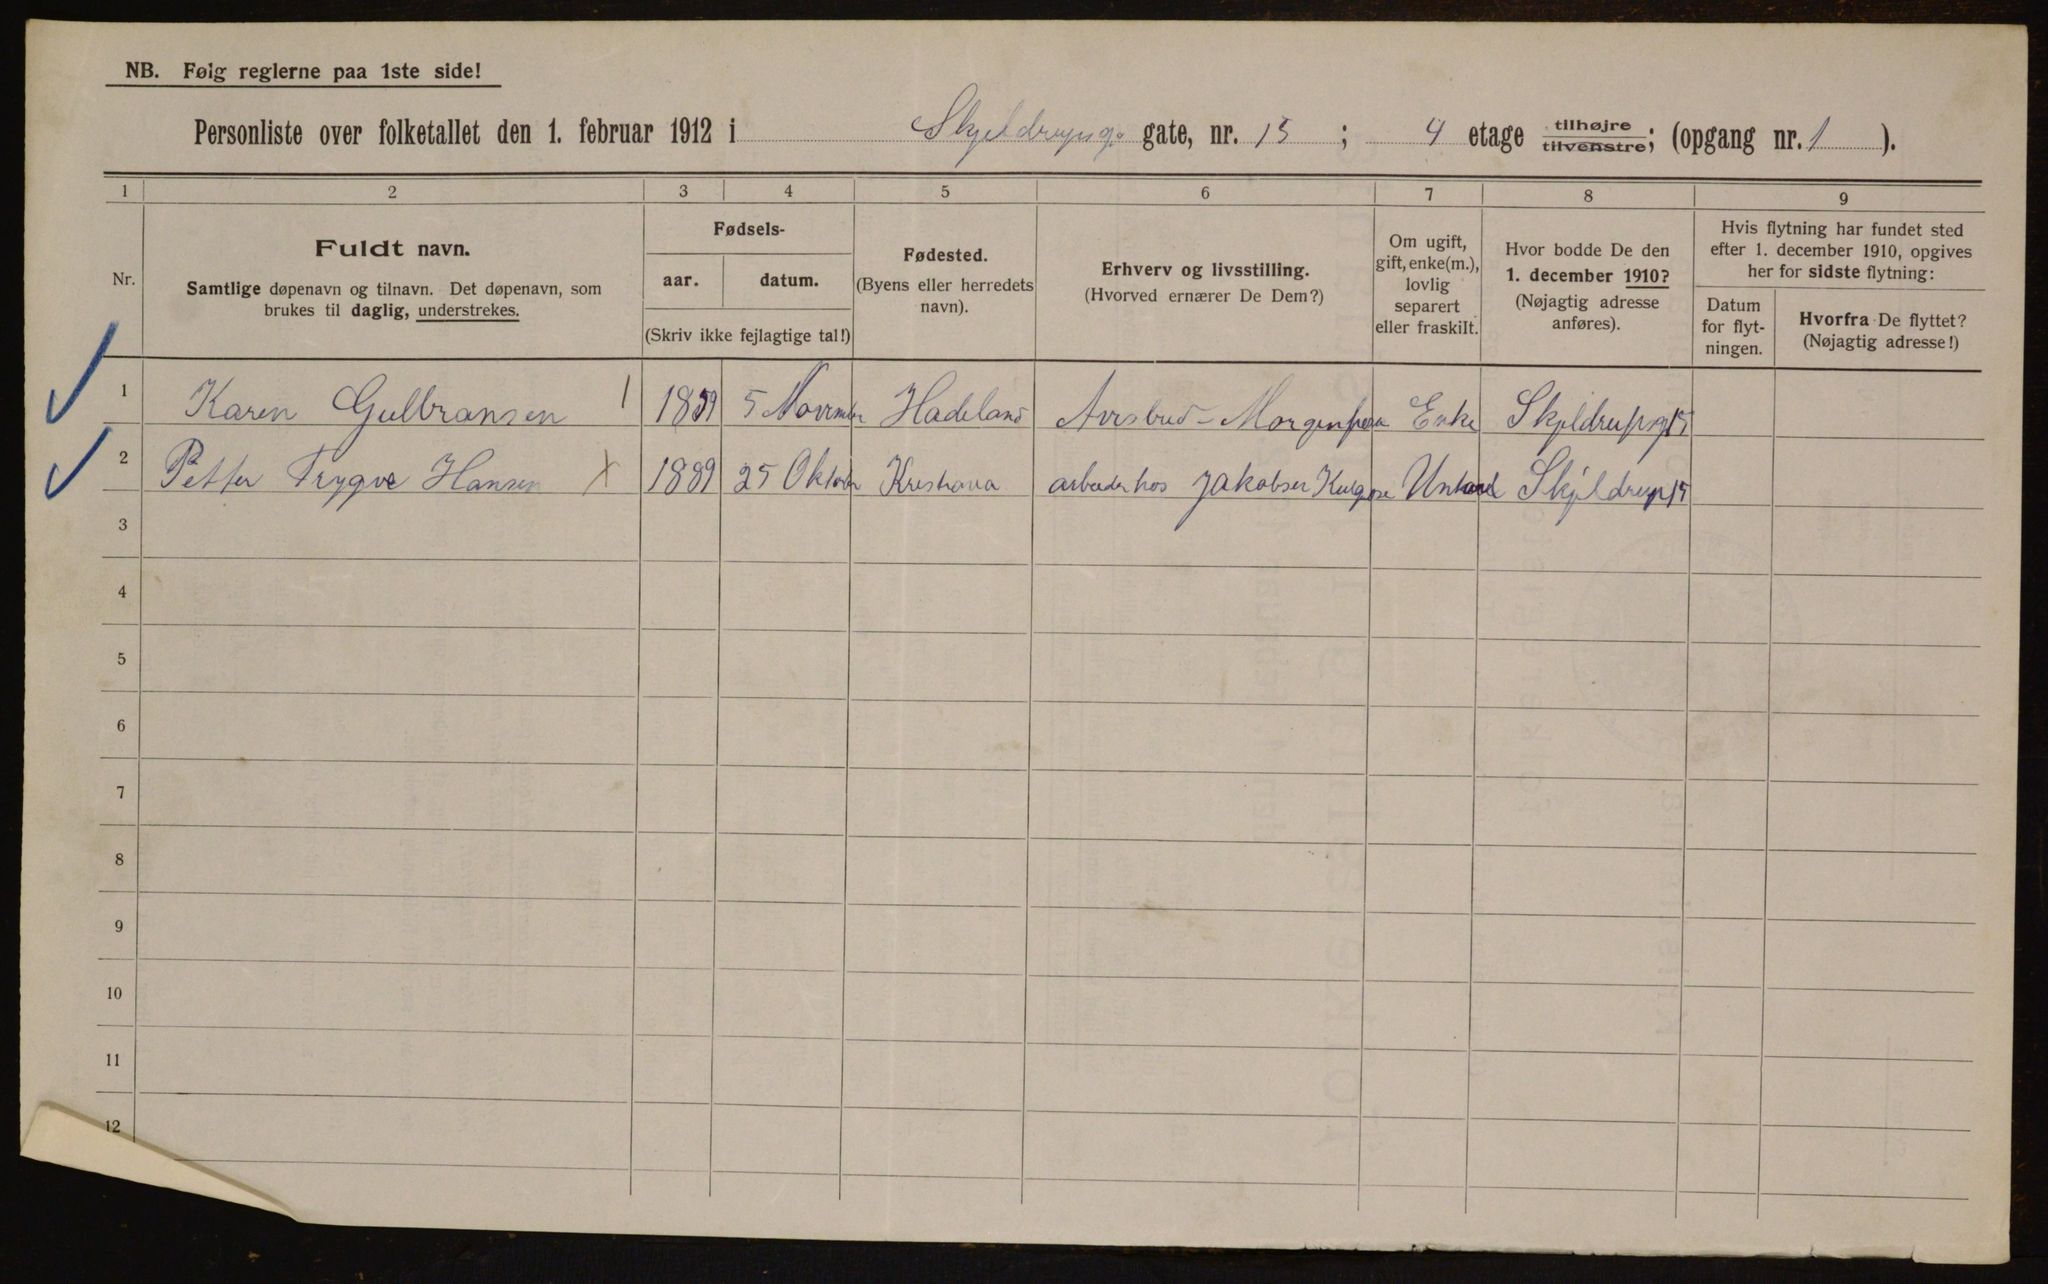 NB. Følg reglerne paa 1ste side!
Personliste over folketallet den 1. februar 1912 i Skjeldrupsg. gate, nr. 15 ; 4 etage tilhøjre tilvenstre; (opgang nr. 1 ).
1 2 3 4 5 6 7 8 9
Nr.
Fuldt navn.
Samtlige døpenavn og tilnavn. Det døpenavn, som
brukes til daglig, understrekes.
Fødsels-
aar. datum.
(Skriv ikke fejlagtige tal!)
Fødested.
(Byens eller herredets
navn).
Erhverv og livsstilling.
(Hvorved ernærer De Dem?)
Om ugift,
gift, enke(m.),
lovlig
separert
eller fraskilt.
Hvor bodde De den
1. december 1910?
(Nøjagtig adresse
anføres).
Hvis flytning har fundet sted
efter 1. december 1910, opgives
her for sidste flytning:
Datum
for flyt-
ningen.
Hvorfra De flyttet?
(Nøjagtig adresse!)
1 Karen Gulbransen 1 1859 5 November Hadeland Avisbud - Enke Skjeldrupsg 15
2 Petter Trygve Hansen X 1889 25 Oktober Kristiania arbeider hos Jakobsen Skjeldrup 15
3
4
5
6
7
8
9
10
11
12